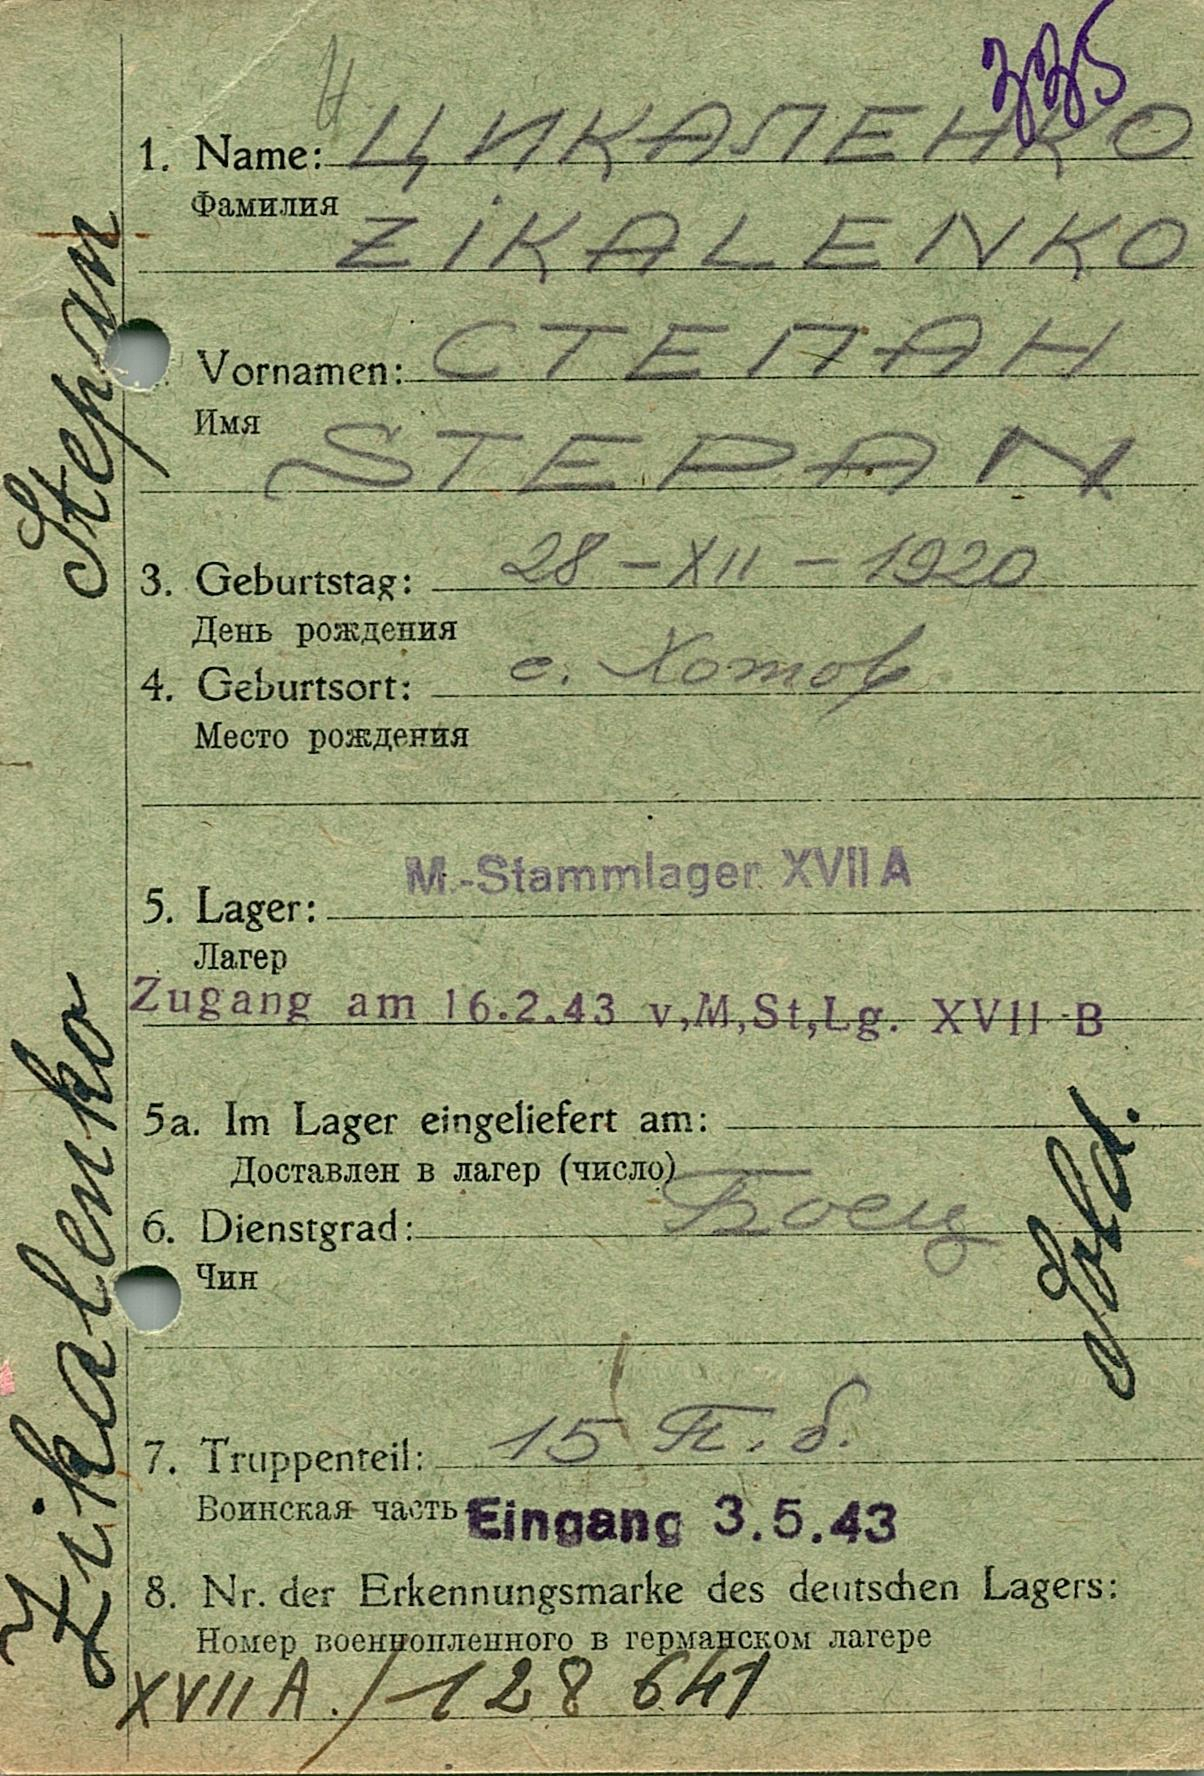 335
1. Name: ЦИКАЛЕНКО
Фамилия
ZIKALENKO
Vornamen: СТЕПАН
Имя
STEPAN
3. Geburtstag: 28 – XII – 1920
День рождения
4. Geburtsort: с. Хотов
Место рождения
M.-Stammlager XVII A
5. Lager:
Лагер
Zugang am 16.2.43 v,M,St,Lg. XVII B
5a. Im Lager eingeliefert am:
Доставлен в лагер (число)
6. Dienstgrad: Боец
Чин
Sold.
7. Truppenteil: 15 П. б.
Воинская часть Eingang 3.5.43
8. Nr. der Erkennungsmarke des deutschen Lagers:
Номер военнопленного в германском лагере
XVII A. / 128 641
Zikalenko Stepan